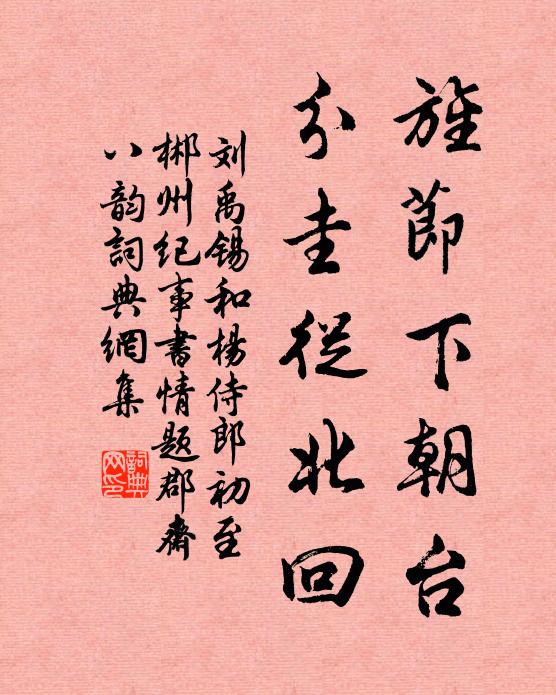 旌節下朝台
分圭從北回
刘禹錫和楊侍郎初至
郴州纪事書情题郡齋
八韵詞典網集
詞典网印